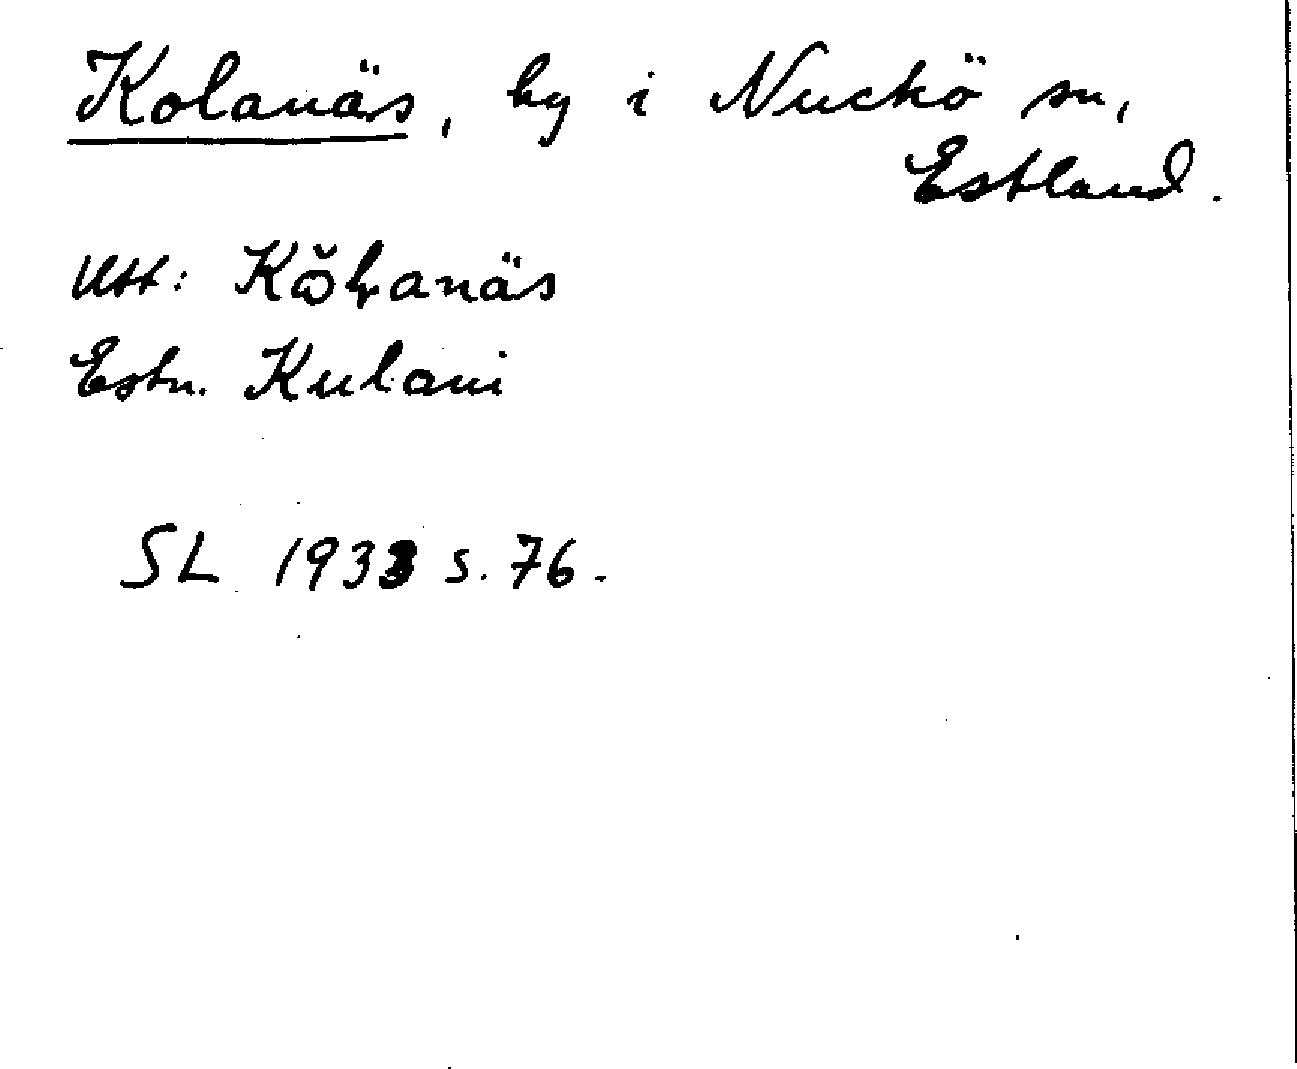 Kolanäs, by i Nuckö sn,
Estland.
Utt: Kŏłanäs
Estn. Kulani
SL 1933 s. 76.